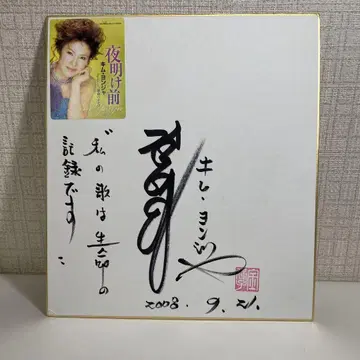 夜明け前
キム・ヨンジャ
キム・ヨンジャ
〝私の歌は生命の
記録です〟
2008. 9. 21.